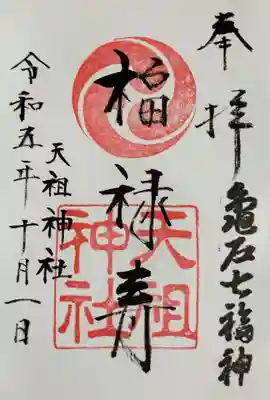 奉拝
龜戸七福神
福禄寿
天祖
神社
天祖神社
令和五年十月一日